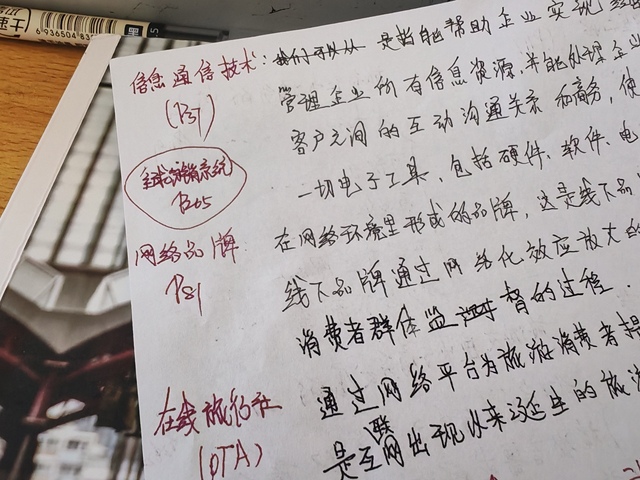 693650483
黑
信息通信技术: 是指能帮助企业实现
(P37) 管理企业所有信息资源,并能处理企业
客户之间的互动沟通关系和商务,使
全球分销系统 一切电子工具,包括硬件、软件、电
P205
网络品牌 在网络环境里形成的品牌,这是线下品
P81 线下品牌通过网络化效应放大的
消费者群体监督的过程.
在线旅行社 通过网络平台为旅游消费者提
(OTA) 是互联网出现以来诞生的旅游